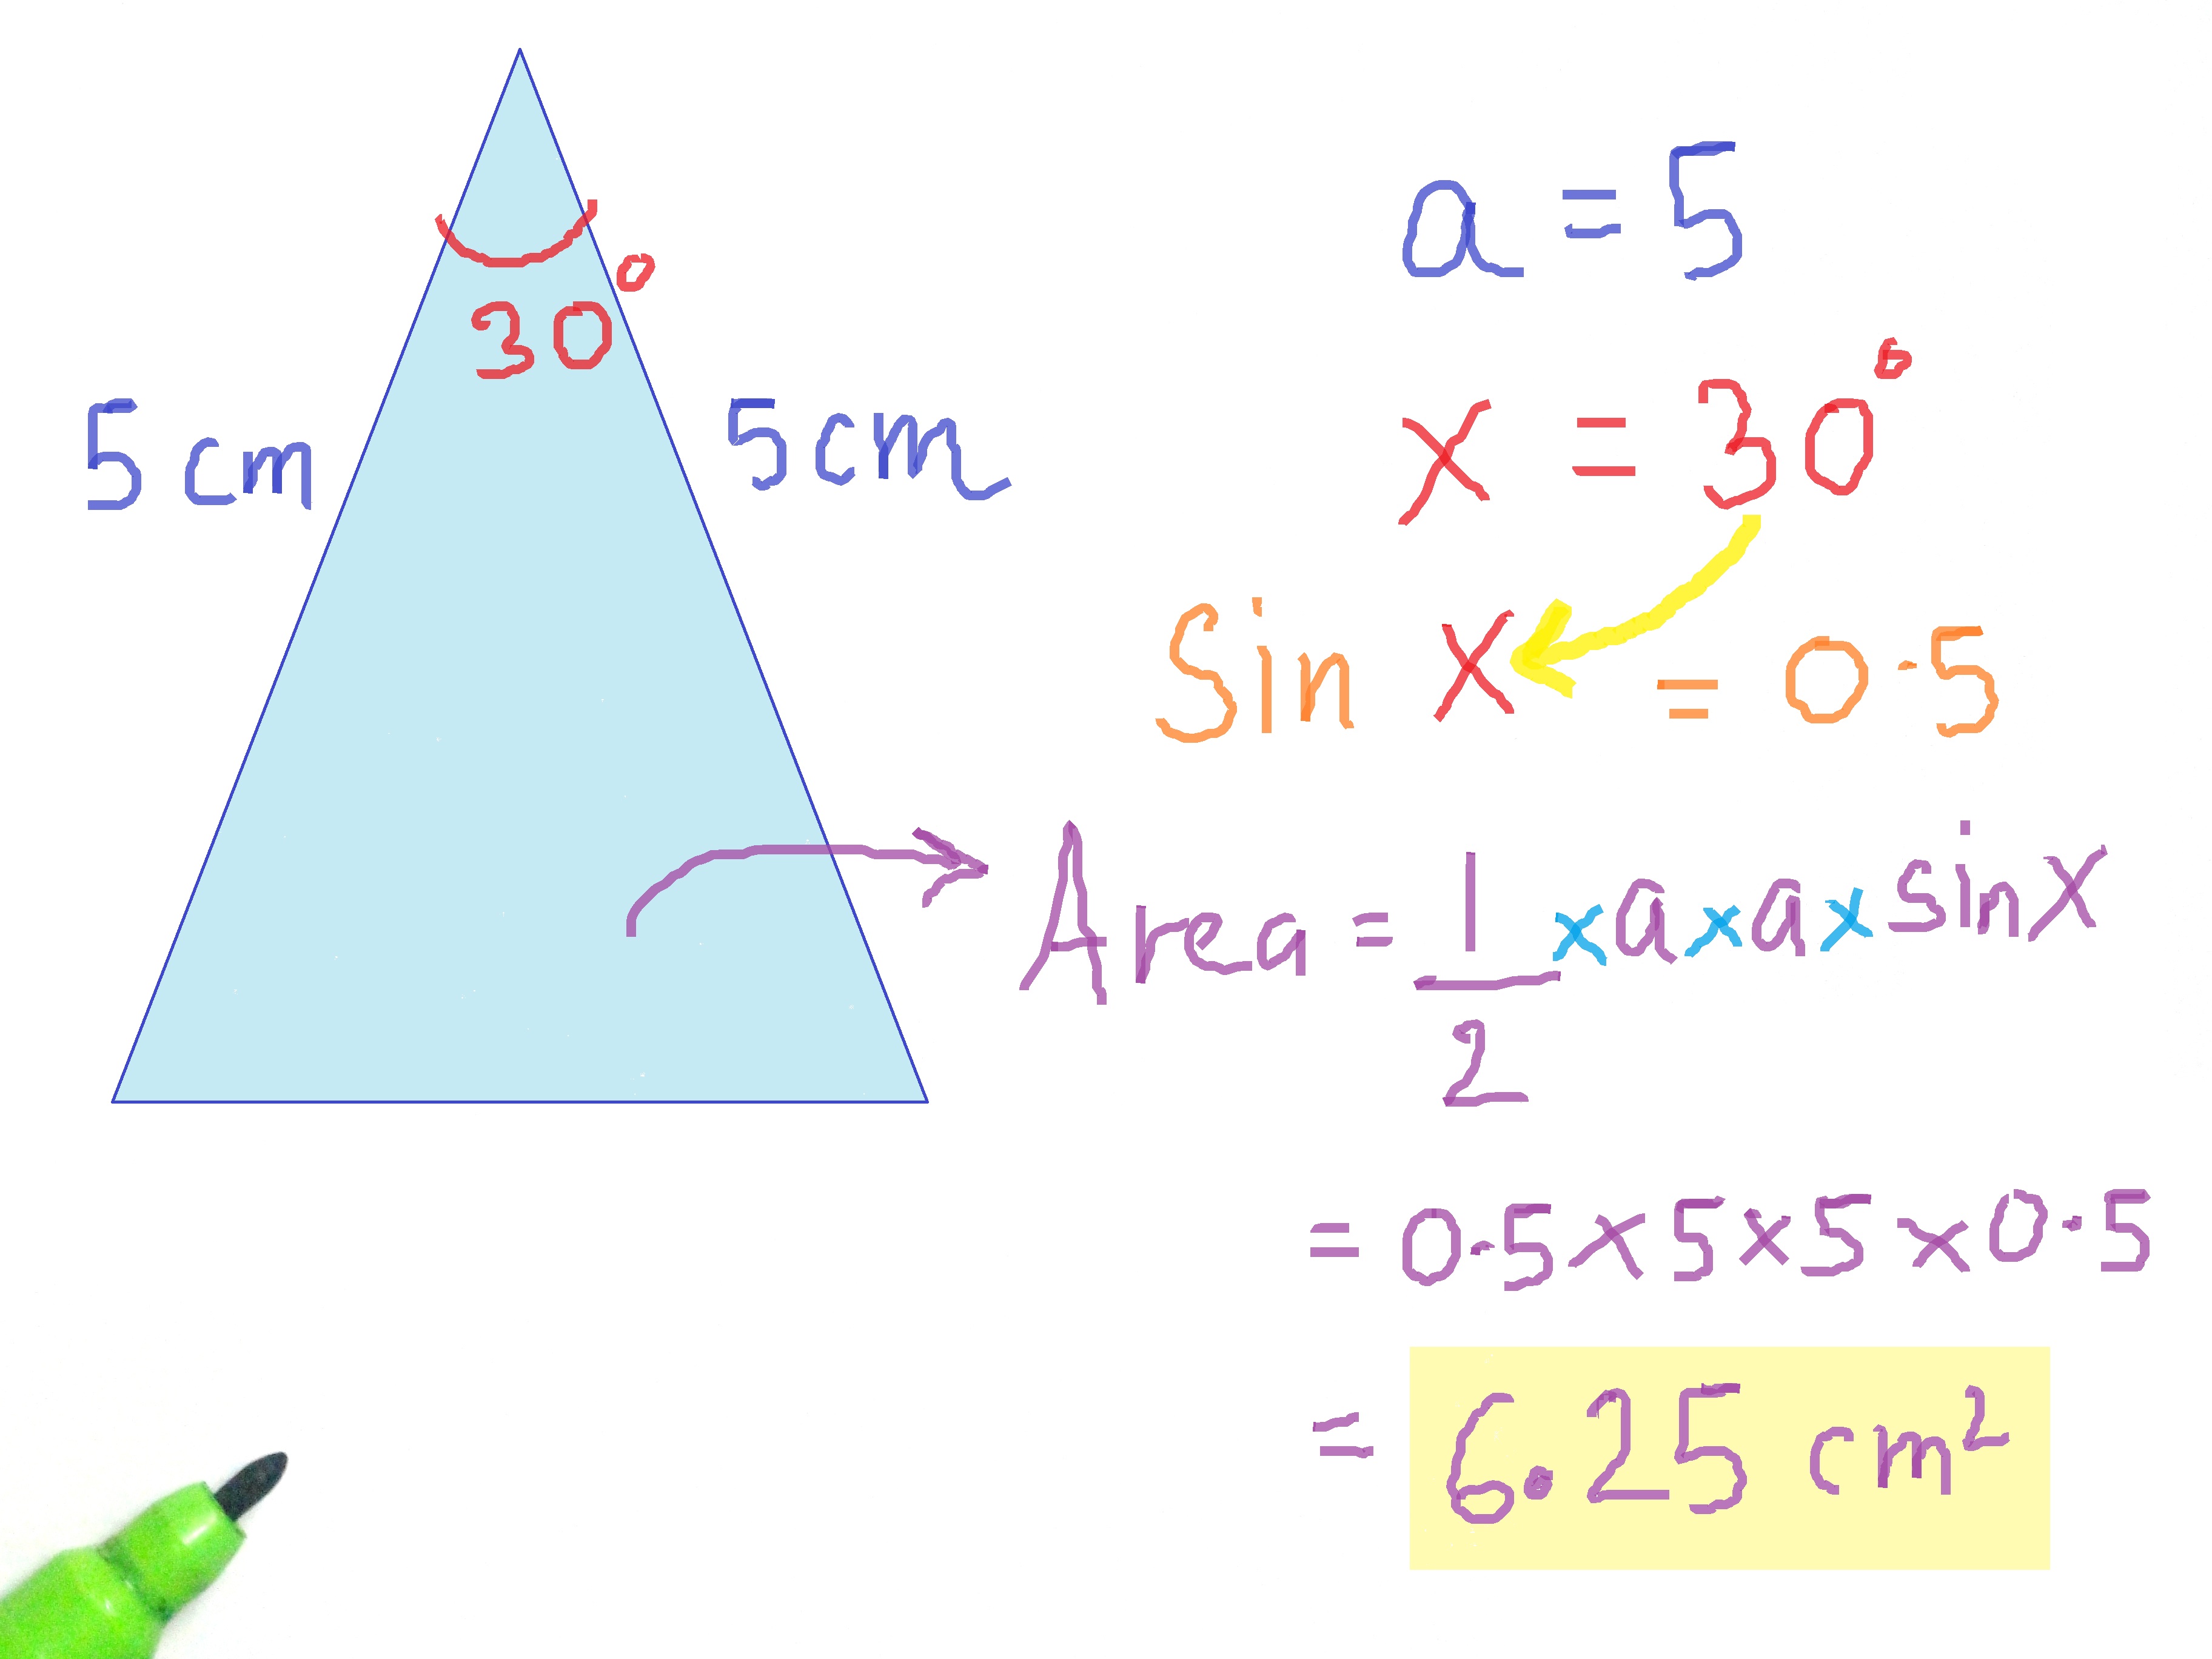 30°
5 cm
5cm
a = 5
x = 30°
Sin x = 0.5
Area = 1/2 x a x a x sin x
= 0.5 x 5 x 5 x 0.5
= 6.25 cm²